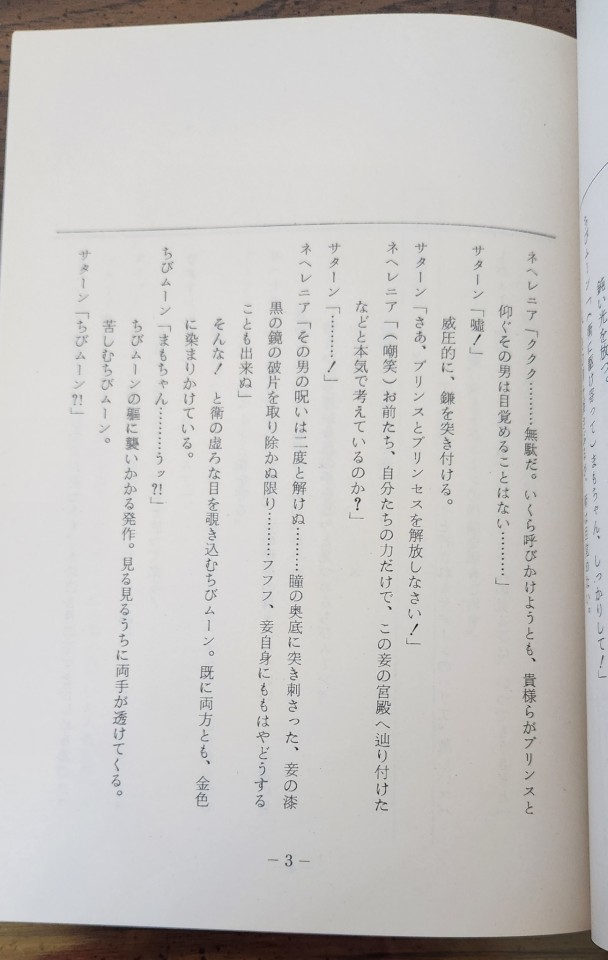 鈍い光を放つ。
ちびムーン「（衛に駆け寄って）まもちゃん、しっかりして！」
ネヘレニア「ククク………無駄だ。いくら呼びかけようとも、貴様らがプリンスと
仰ぐその男は目覚めることはない………」
サターン「嘘！」
威圧的に、鎌を突き付ける。
サターン「さあ、プリンスとプリンセスを解放しなさい！」
ネヘレニア「（嘲笑）お前たち、自分たちの力だけで、この妾の宮殿へ辿り付けた
などと本気で考えているのか？」
サターン「………！」
ネヘレニア「その男の呪いは二度と解けぬ………瞳の奥底に突き刺さった、妾の漆
黒の鏡の破片を取り除かぬ限り………フフフ、妾自身にももはやどうする
ことも出来ぬ」
そんな！　と衛の虚ろな目を覗き込むちびムーン。既に両方とも、金色
に染まりかけている。
ちびムーン「まもちゃん………うッ?!」
ちびムーンの軀に襲いかかる発作。見る見るうちに両手が透けてくる。
苦しむちびムーン。
サターン「ちびムーン?!」
－3－